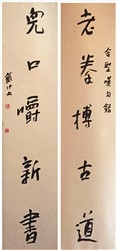 老拳搏古道
兒口嚼新書